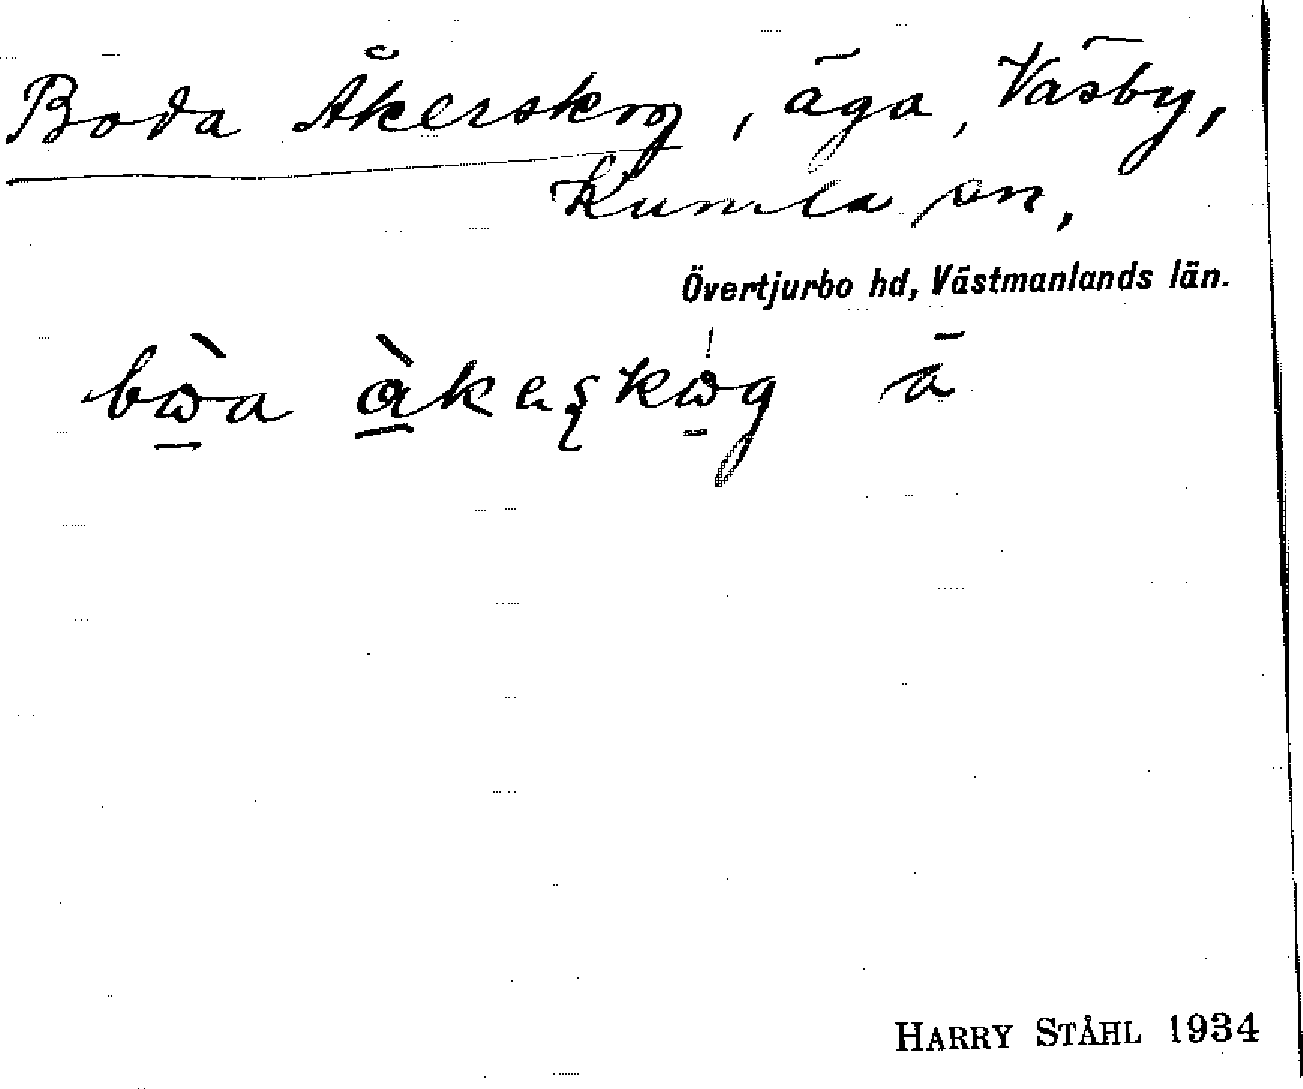 Boda Åkerskog, äga, Väsby,
Kumla sn,
Övertjurbo hd, Västmanlands län.
bὼa àkeʂkωg ā
HARRY STÅHL 1934